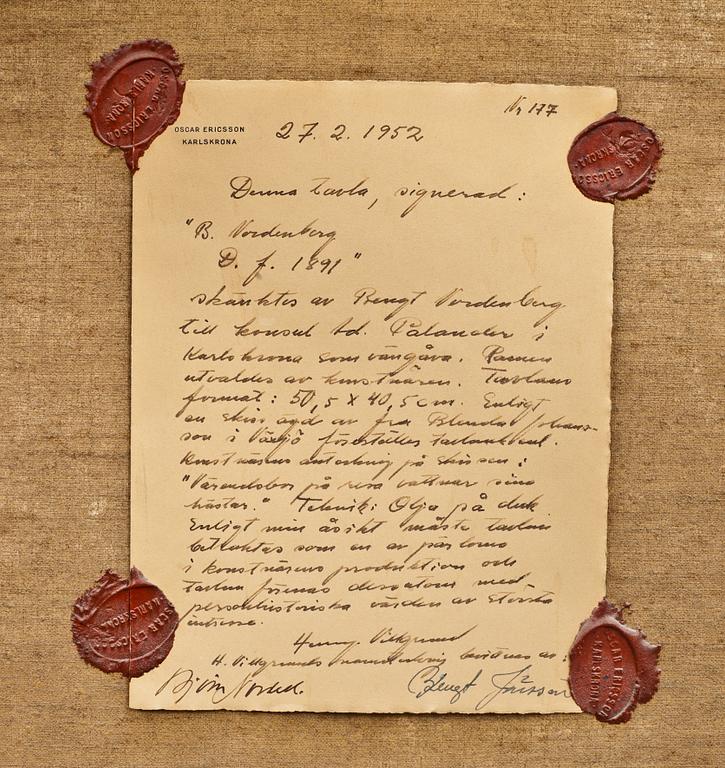 Nr 177
OSCAR ERICSSON
KARLSKRONA
27.2.1952
Denna tavla, signerad:
"B. Nordenberg
D. f. 1891"
skänktes av Bengt Nordenberg
till konsul Ad. Palander i
Karlskrona som vängåva. Ramen
utvaldes av konstnären. Tavlans
format: 50,5 x 40,5 cm. Enligt
en skiss ägd av fru Blenda Johans-
son i Växjö föreställer tavlan
konstnärens anteckning på skissen:
"Värendsbor på resa vattnar sina
hästar." Teknik: Olja på duk.
Enligt min åsikt måste tavlan
betraktas som en av pärlorna
i konstnärens produktion och
tavlan förenas dessutom med
personhistoriska värden av största
intresse.
Henning Villgrund
H. Villgrunds namnteckning bevittnas av:
Björn Bengt Jönsson
OSCAR ERICSSON
KARLSKRONA
OSCAR ERICSSON
KARLSKRONA
OSCAR ERICSSON
KARLSKRONA
OSCAR ERICSSON
KARLSKRONA